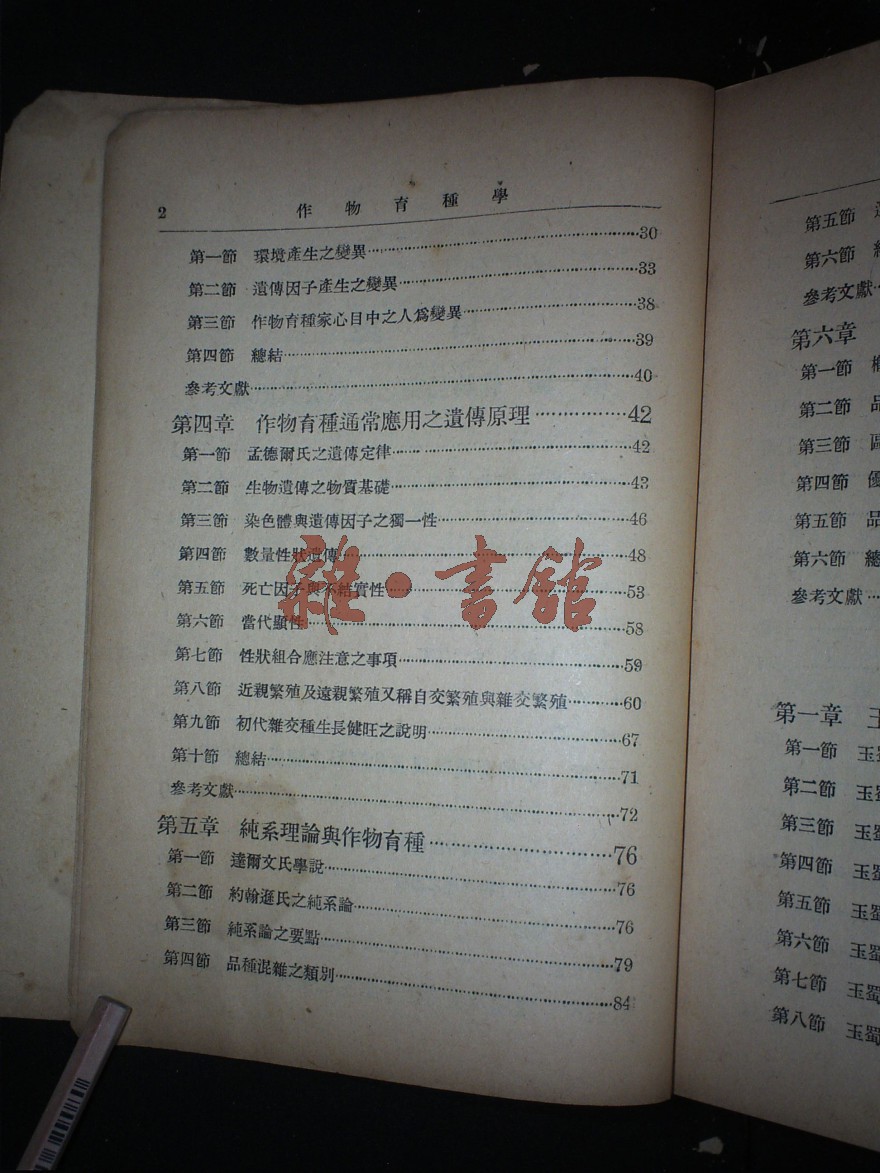 2 作物育種學
第一節 環境產生之變異 30
第二節 遺傳因子產生之變異 33
第三節 作物育種家心目中之人爲變異 38
第四節 總結 39
參考文獻 40
第四章 作物育種通常應用之遺傳原理 42
第一節 孟德爾氏之遺傳定律 42
第二節 生物遺傳之物質基礎 43
第三節 染色體與遺傳因子之獨一性 46
第四節 數量性狀遺傳 48
第五節 死亡因子與不結實性 53
第六節 當代顯性 58
第七節 性狀組合應注意之事項 59
第八節 近親繁殖及遠親繁殖又稱自交繁殖與雜交繁殖 60
第九節 初代雜交種生長健旺之說明 67
第十節 總結 71
參考文獻 72
第五章 純系理論與作物育種 76
第一節 達爾文氏學說 76
第二節 約翰遜氏之純系論 76
第三節 純系論之要點 79
第四節 品種混雜之類別 84
雜·書館
第五節
第六節
參考文獻
第六章
第一節
第二節 品
第三節
第四節 優
第五節 品
第六節 總
參考文獻
第一章 玉
第一節 玉蜀
第二節 玉蜀
第三節 玉蜀
第四節 玉蜀
第五節 玉蜀
第六節 玉蜀
第七節 玉蜀
第八節 玉蜀